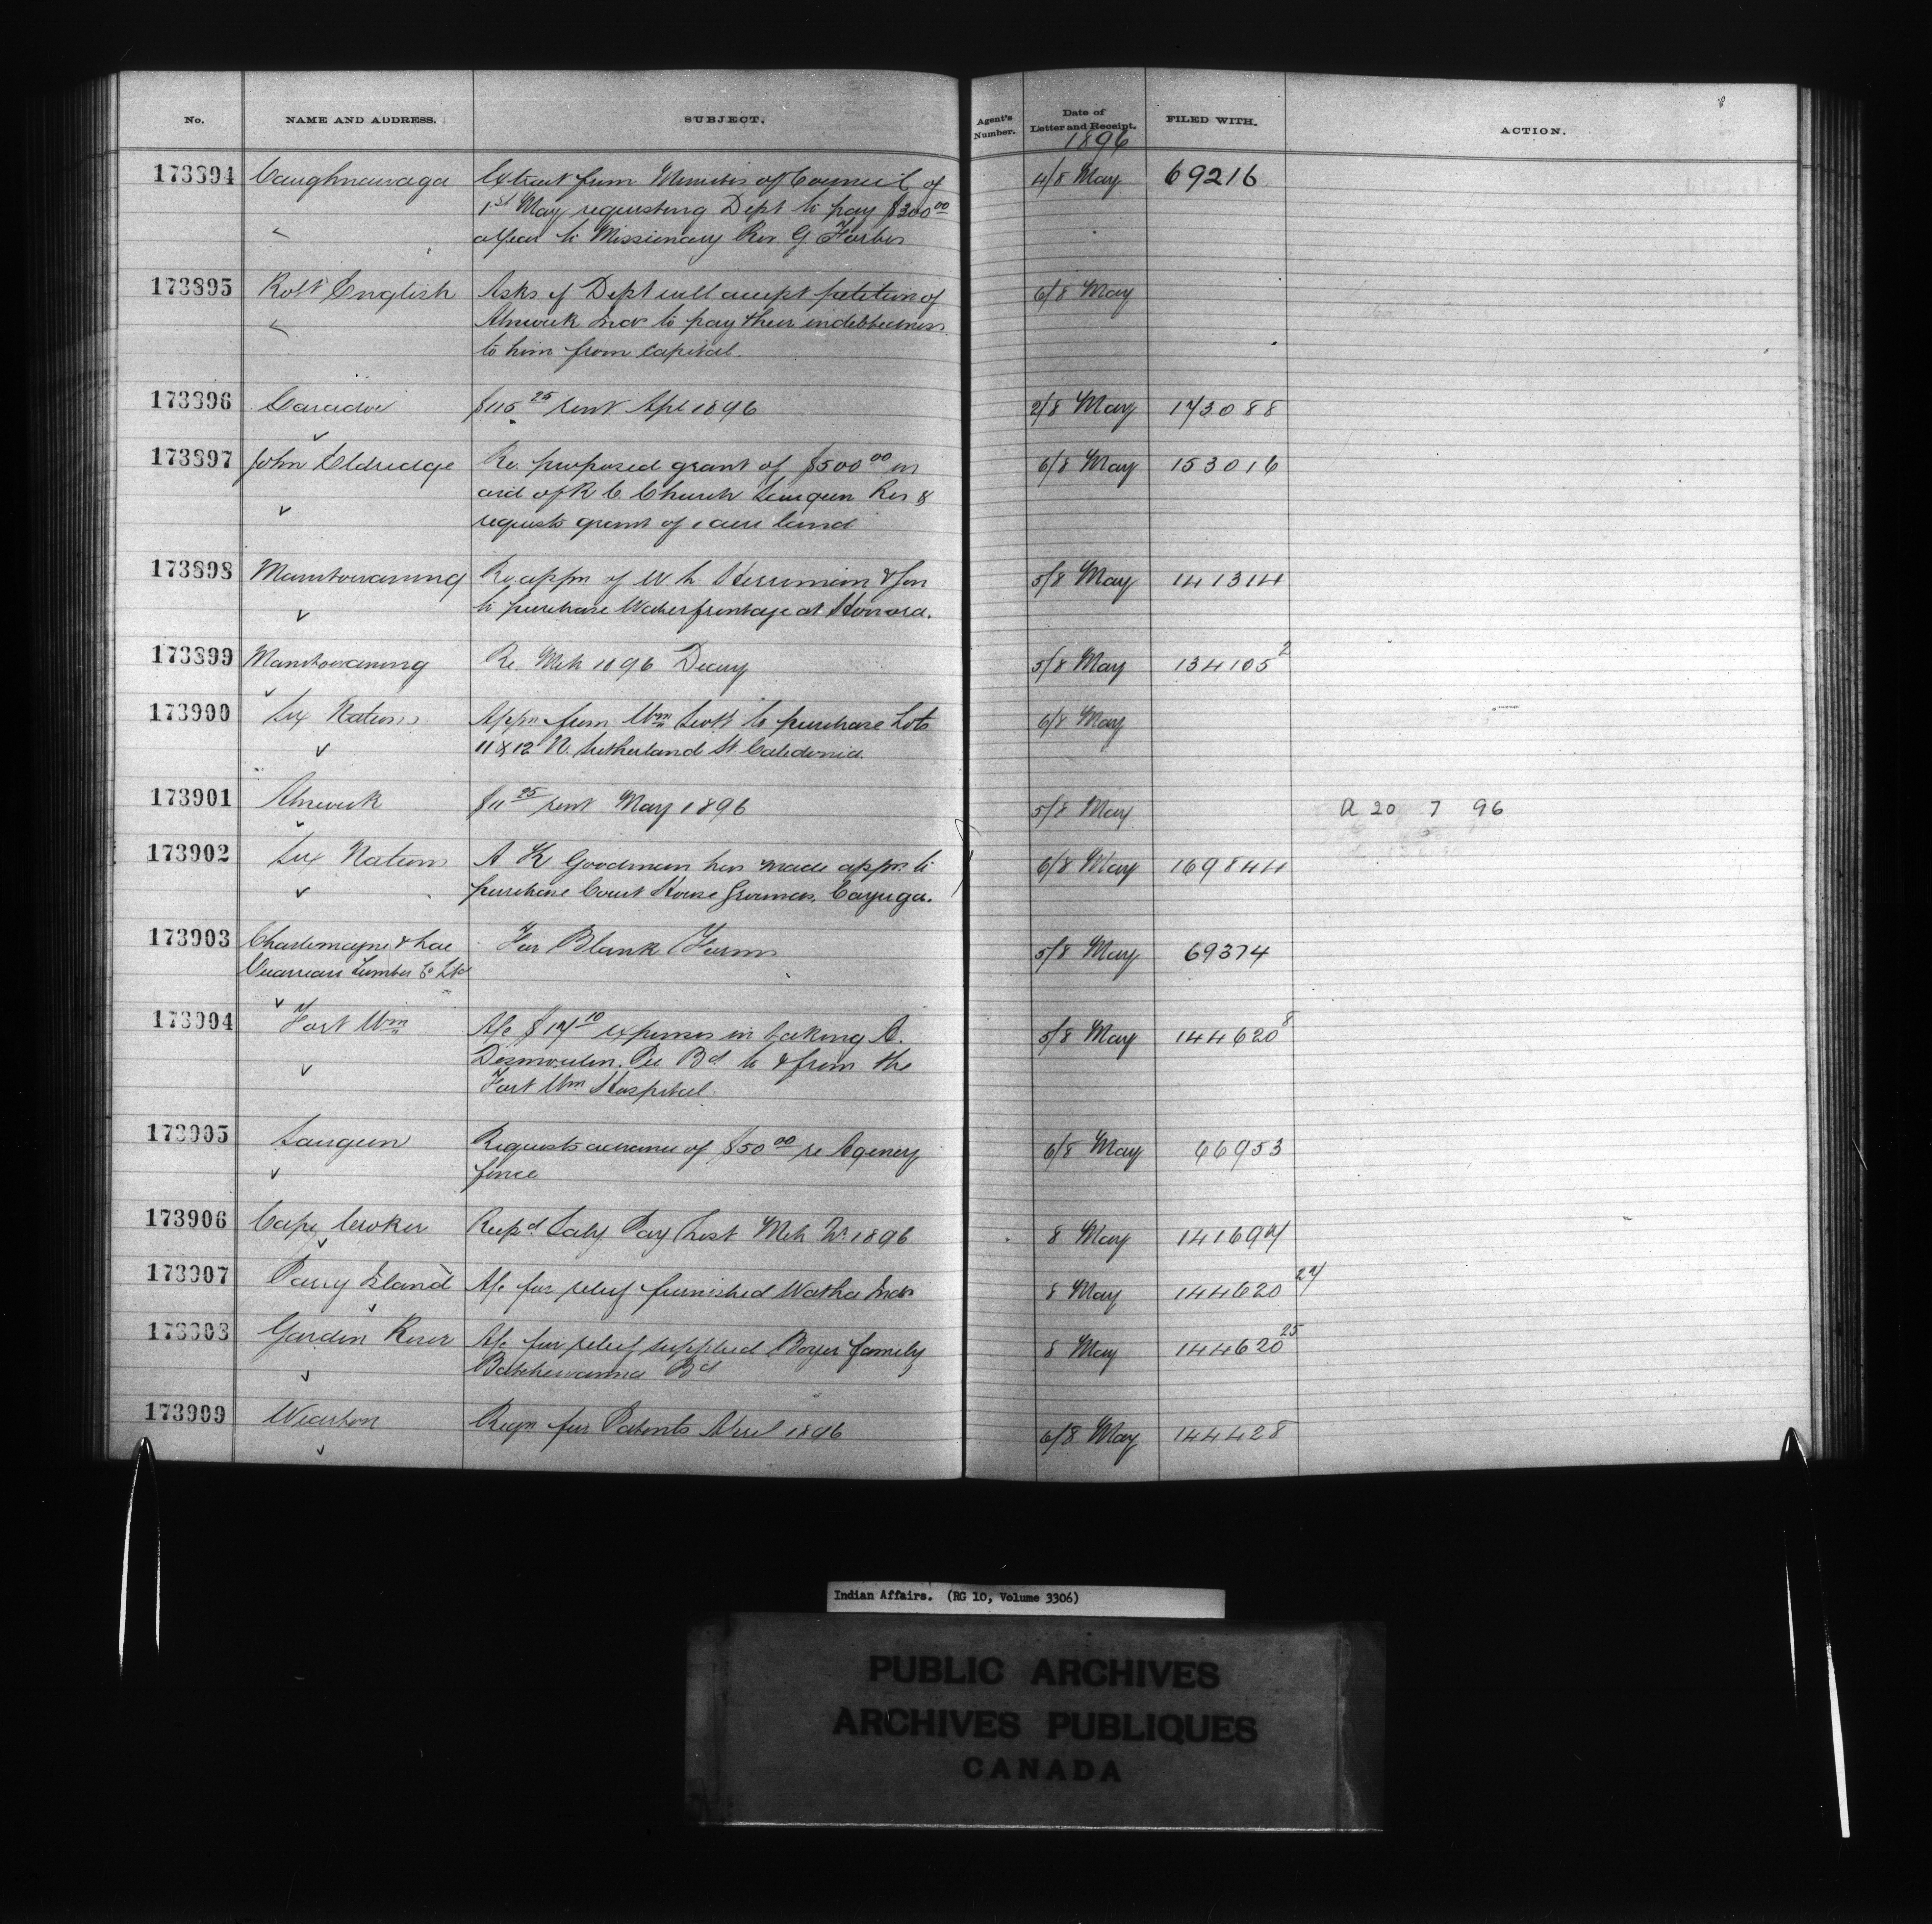 No. NAME AND ADDRESS. SUBJECT. Agent's Number. Date of Letter and Receipt. FILED WITH. ACTION.
1896
173894 Caughnawaga Extract from Minutes of Council of 4/8 May 69216
1st May requesting Dept to pay $200.00
a year to Missionary Rev. G Forbes
173895 Robt English Asks if Dept will accept petition of 6/8 May
Alnwick Inds to pay their indebtedness
to him from Capital.
173896 Caradoc $115 25 rent Apl 1896 2/8 May 173088
173897 John Eldridge Re proposed grant of $500 00 in 6/8 May 153016
aid of R C Church Saugeen Res &
requests grant of 1 acre land
173898 Manitowaning Re appn of W h Herriman & Son 5/8 May 141314
to purchase Water frontage at Honora.
173899 Manitowaning Re Mch 1896 Diary 5/8 May 134105 2
173900 Six Nations Appn from Wm Scott to purchase Lots 6/8 May
11 & 12 N. Sutherland St. Caledonia.
173901 Alnwick $11 25 rent May 1896 5/8 May A 20 7 96
173902 Six Nations A K Goodman has made appn to 6/8 May 169844
purchase Court House Grounds, Cayuga.
173903 Charlemagne & Lac For Blank Forms 5/8 May 69374
Ouareau Lumber Co Ltd
173904 Fort Wm A/c $17 10 expenses in taking A. 5/8 May 144620 8
Desmoulin, Pic Bd to & from the
Fort Wm Hospital
173905 Saugeen Requests advance of $50 00 re Agency 6/8 May 66953
fence
173906 Cape Croker Recpd Saly Pay List Mch Qr 1896 8 May 141697
173907 Parry Island A/c for relief furnished Watha Inds 8 May 144620 27
173908 Garden River A/c for relief supplied Boyer family 8 May 144620 25
Batchewanna Bd
173909 Wiarton Reqn for Patents April 1896 6/8 May 144428
Indian Affairs. (RG 10, Volume 3306)
PUBLIC ARCHIVES
ARCHIVES PUBLIQUES
CANADA